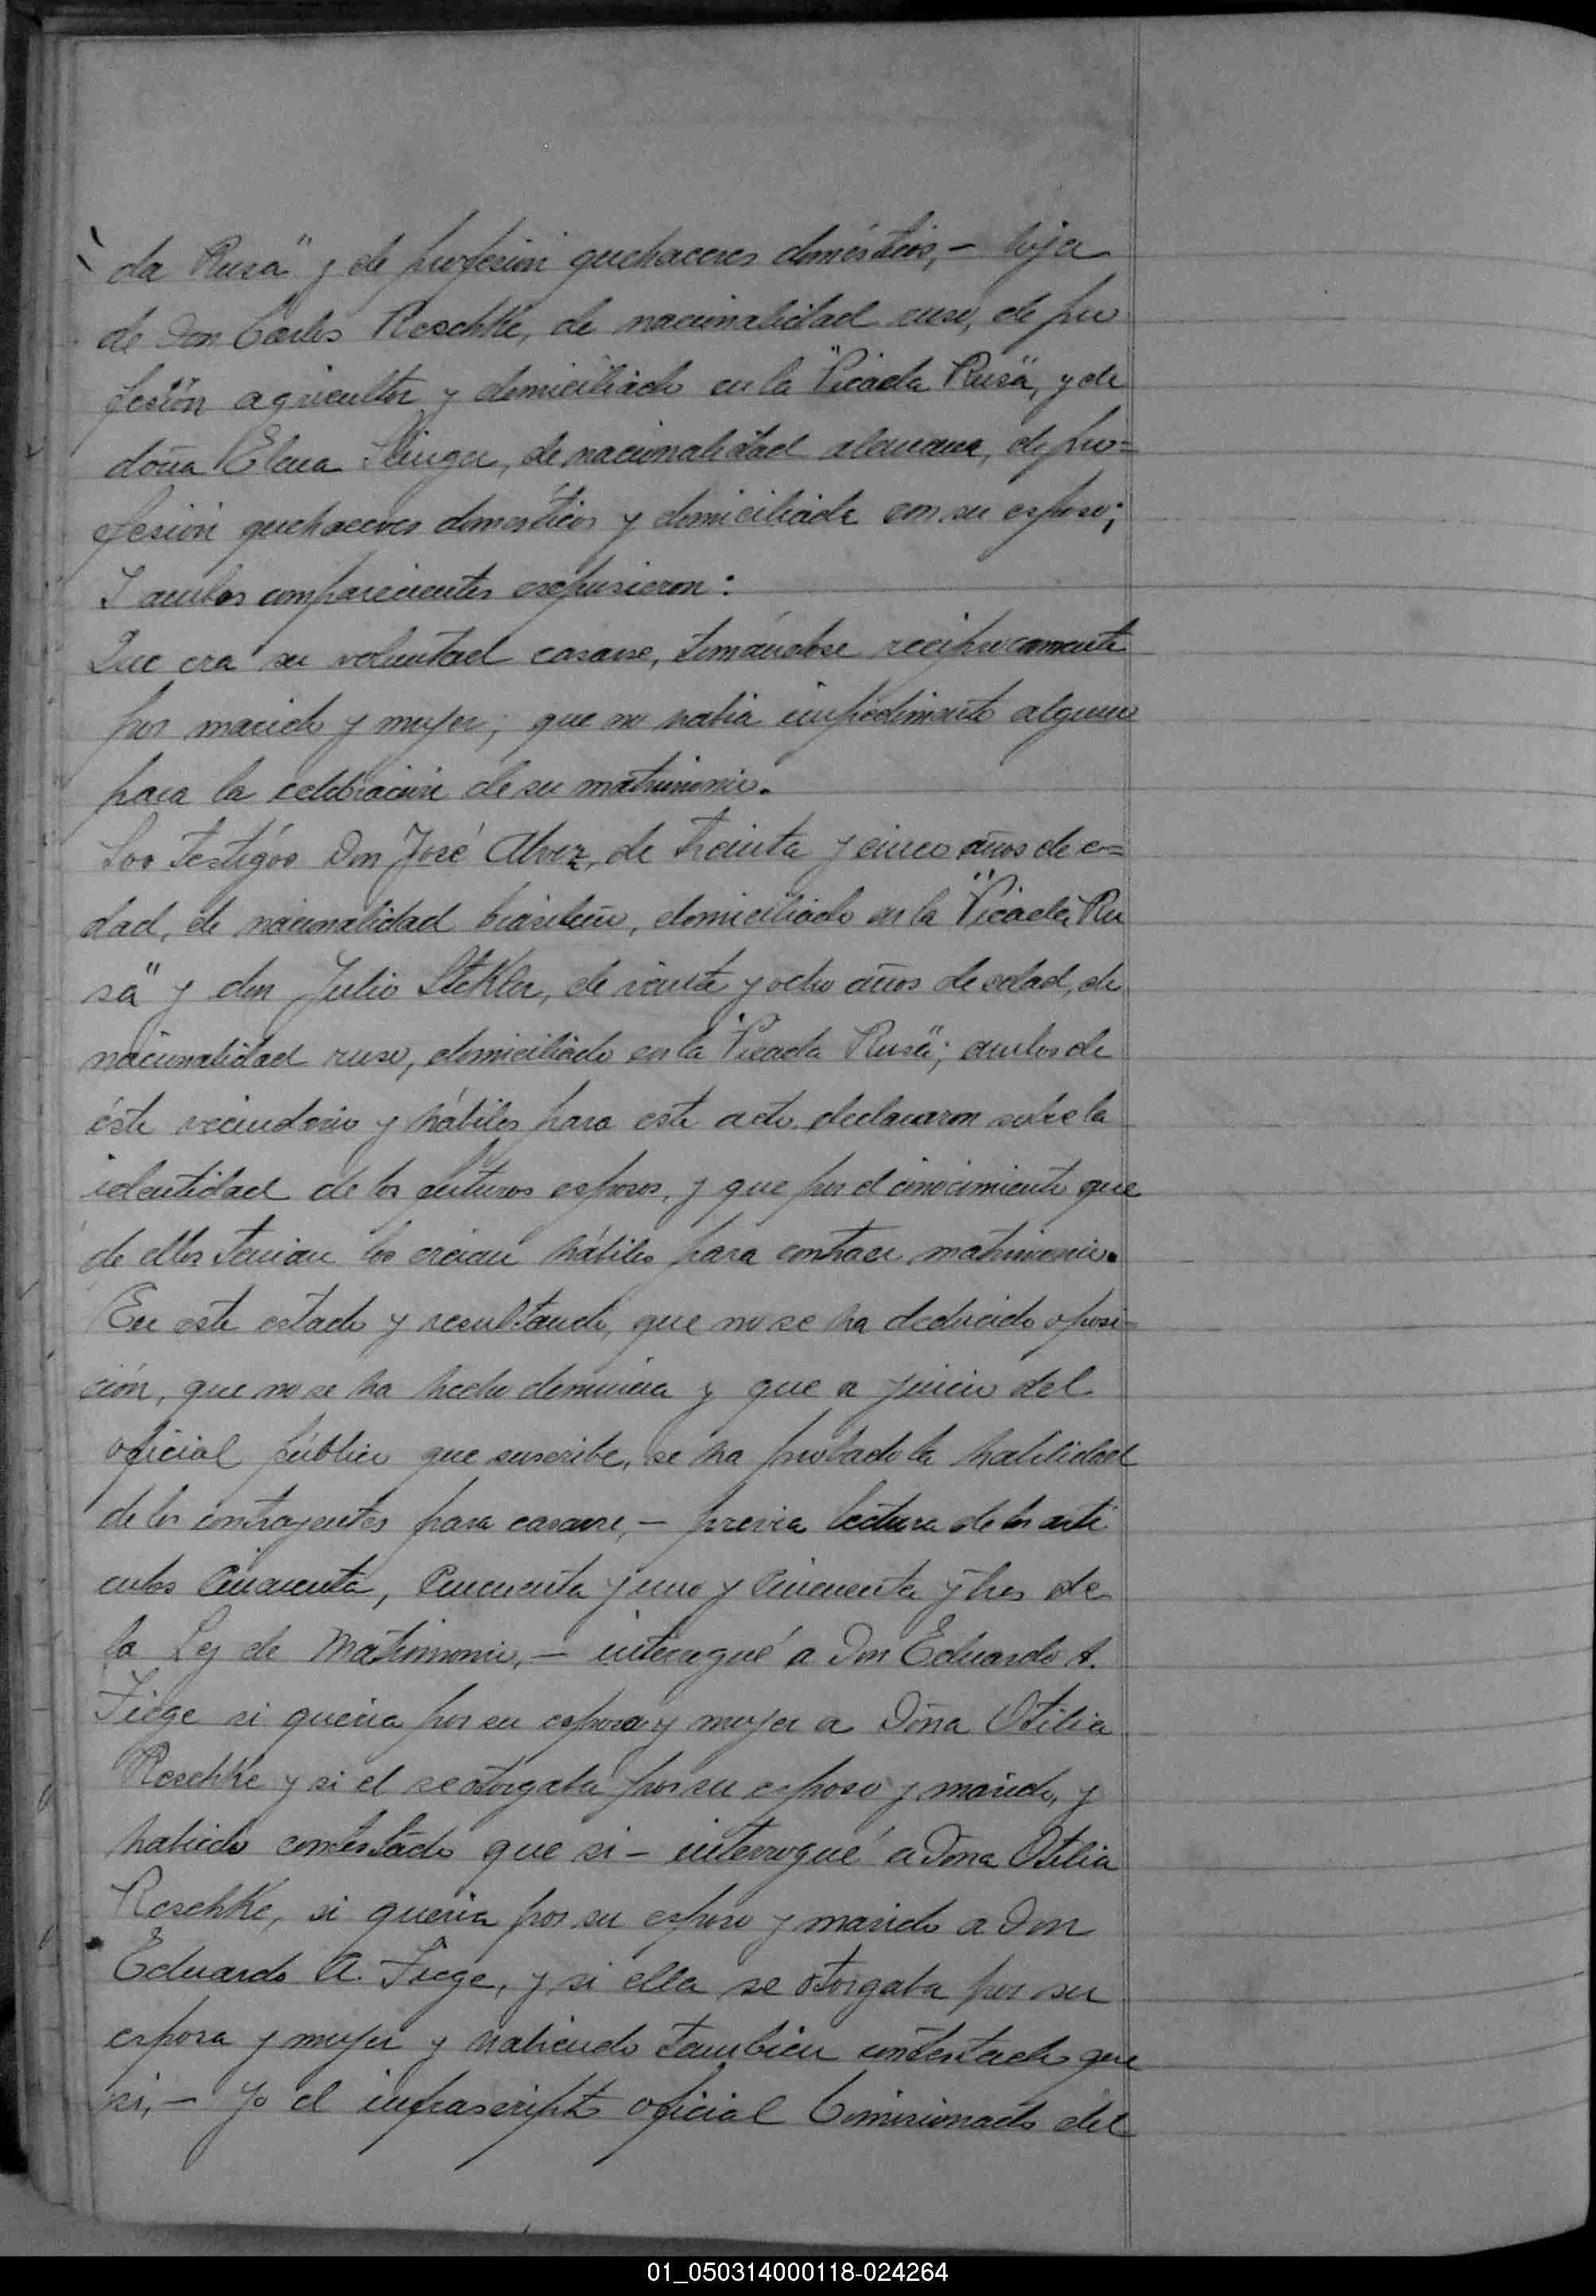 da Rusa" y de profesion quehaceres domésticos, - hija
de Don Carlos Reschke, de nacionalidad ruso, de pro
fesión agricultor y domiciliado en la "Picada Rusa", y de
doña Elena de nacionalidad alemana, de pro=
fesion quehaceres domesticos y domiciliada con su esposo;
I ambos comparecientes expusieron:
Que era su voluntad casarse, tomándose reciprocamente
por marido y mujer; que no había impedimento alguno
para la celebracion de su matrimonio.
Los Testigos Don José Alvez, de treinta y cinco años de e=
dad, de nacionalidad brasilero, domiciliado en la "Picada Ru
sa" y don Julio de veinte y ocho años de edad, de
nacionalidad ruso, domiciliado en la "Picada Rusa"; ambos de
éste vecindario y hábiles para este acto, declararon sobre la
identidad de los futuros esposos, y que por el conocimiento que
de ellos tenian los creian hábiles para contraer matrimonio.
En este estado y resultando, que no se ha deducido oposi=
ción, que no se ha hecho denuncia y que a juicio del
oficial público que suscribe, se ha probado la habilidad
de los contrayentes para casarse, - previa lectura de los arti
culos Cincuenta, Cincuenta y uno y Cincuenta y tres de
la Ley de Matrimonio, - interogué a Don Eduardo A.
Fiege si queria por su esposa y mujer a Doña Otilia
Reschke y si el se otorgaba por su esposo y marido, y
habiendo contestado que si - interrogué a Doña Otilia
Reschke, si queria por su esposo y marido a Don
Eduardo A. Fiege, y si ella se otorgaba por su
esposa y mujer y habiendo tambien contestado que
si, - Yo el infrascripto oficial Comisionado del
01_050314000118-024264